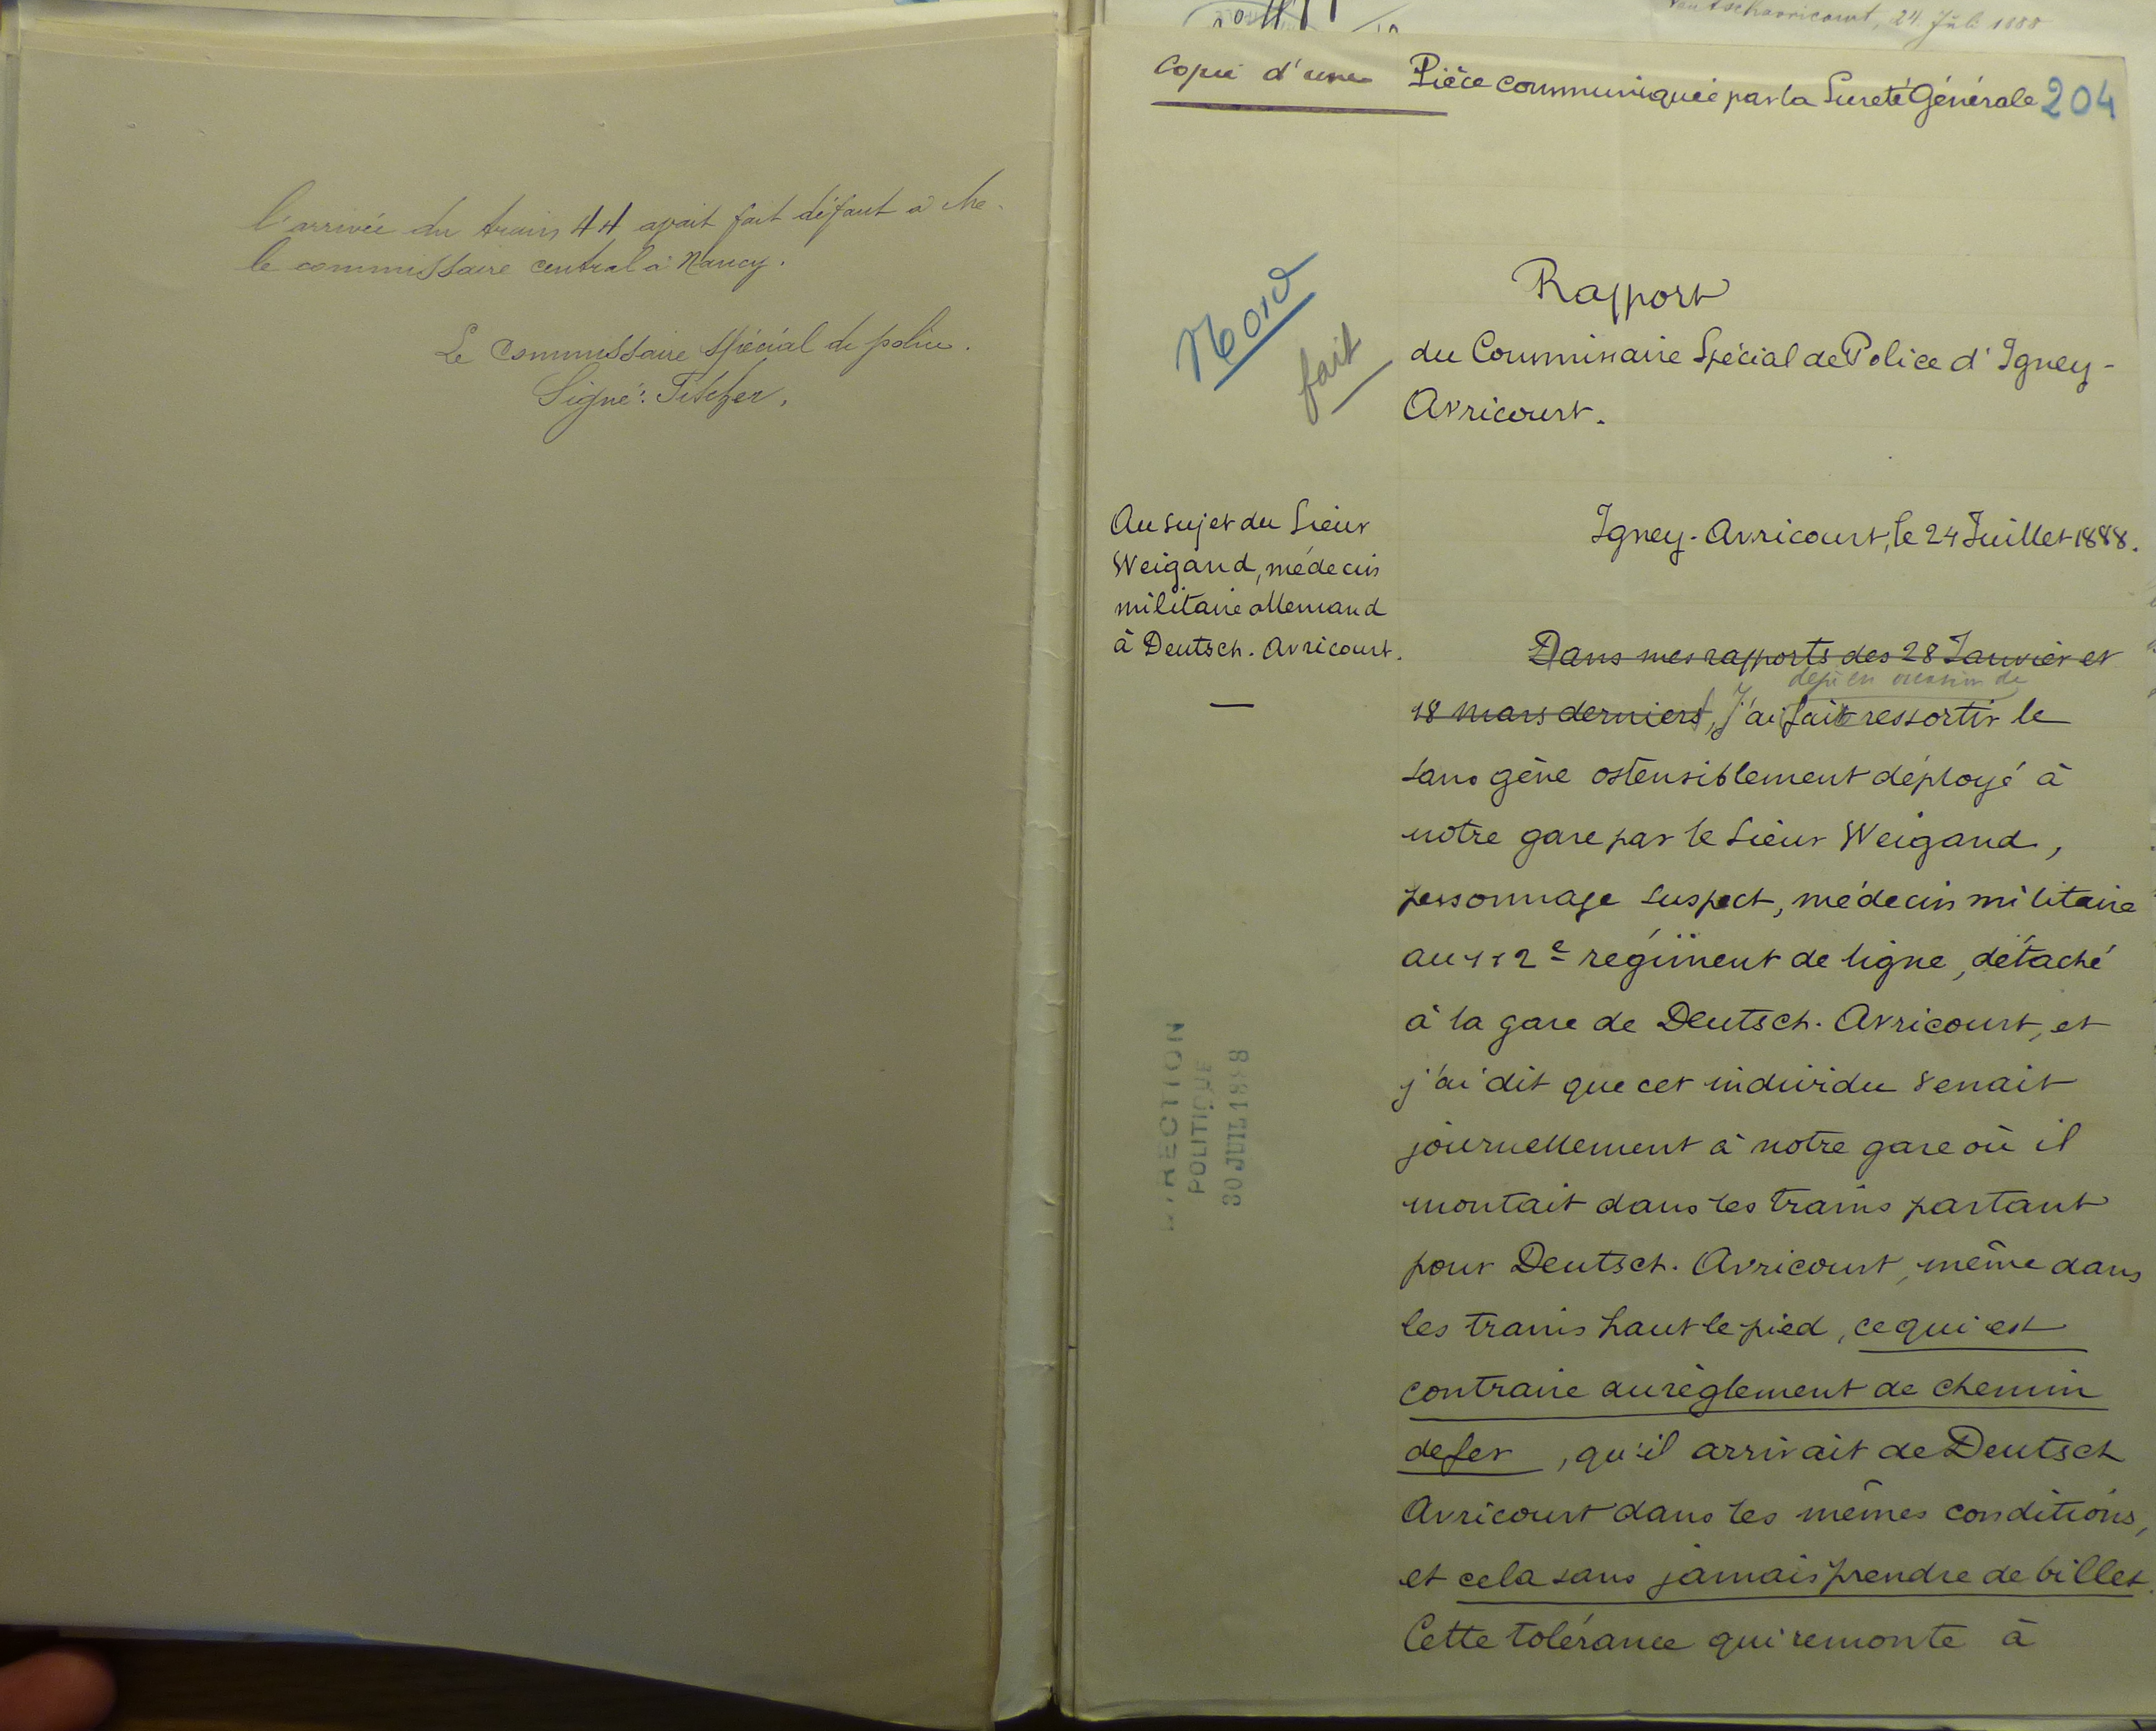 l'arrivée du train 44 avait fait défaut à Mr.
le commissaire central à Nancy.
Le Commissaire spécial de police.
Signé:
Deutschavricourt, 24. Juli 1888
Copie d'une Pièce communiquée par la Sureté Générale 204
Nord
fait
Rapport
du Commissaire Spécial de Police d'Igney-
Avricourt.
Au sujet du Sieur
Weigand, médecin
militaire allemand
à Deutsch. Avricourt.
Igney-Avricourt, le 24 Juillet 1888.
Dans mes rapports des 28 Janvier et
déjà eu occasion de
18 Mars derniers, J'ai fait ressortir le
sans gêne ostensiblement déployé à
notre gare par le Sieur Weigand,
personnage suspect, médecin militaire
au 112e régiment de ligne, détaché
à la gare de Deutsch. Avricourt, et
j'ai dit que cet individu venait
journellement à notre gare où il
montait dans les trains partant
pour Deutsch. Avricourt, même dans
les trains haut le pied, ce qui est
contraire au règlement de chemin
de fer, qu'il arrivait de Deutsch
Avricourt dans les mêmes conditions,
et cela sans jamais prendre de billet.
Cette tolérance qui remonte à
DIRECTION
POLITIQUE
30 JUIL 1888